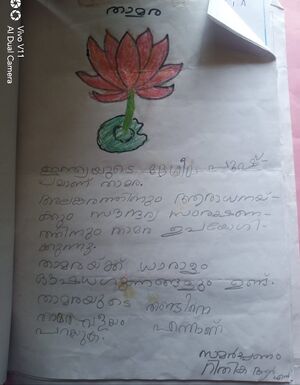 Vivo V11
AI Dual Camera
താമര
ഇന്ത്യയുടെ ദേശീയ പുഷ്പ-
മാണ് താമര.
അലങ്കാരത്തിനും ആരാധനയ്-
ക്കും സൗന്ദര്യ സംരക്ഷണ-
ത്തിനും താമര ഉപയോഗി-
ക്കുന്നു.
താമരയ്ക്ക് ധാരാളം
ഔഷധഗുണങ്ങളും ഉണ്ട്.
താമരയുടെ തണ്ടിനെ
താമര വളയം എന്നാണ്
പറയുക.
സമർപ്പണം
റിതിക